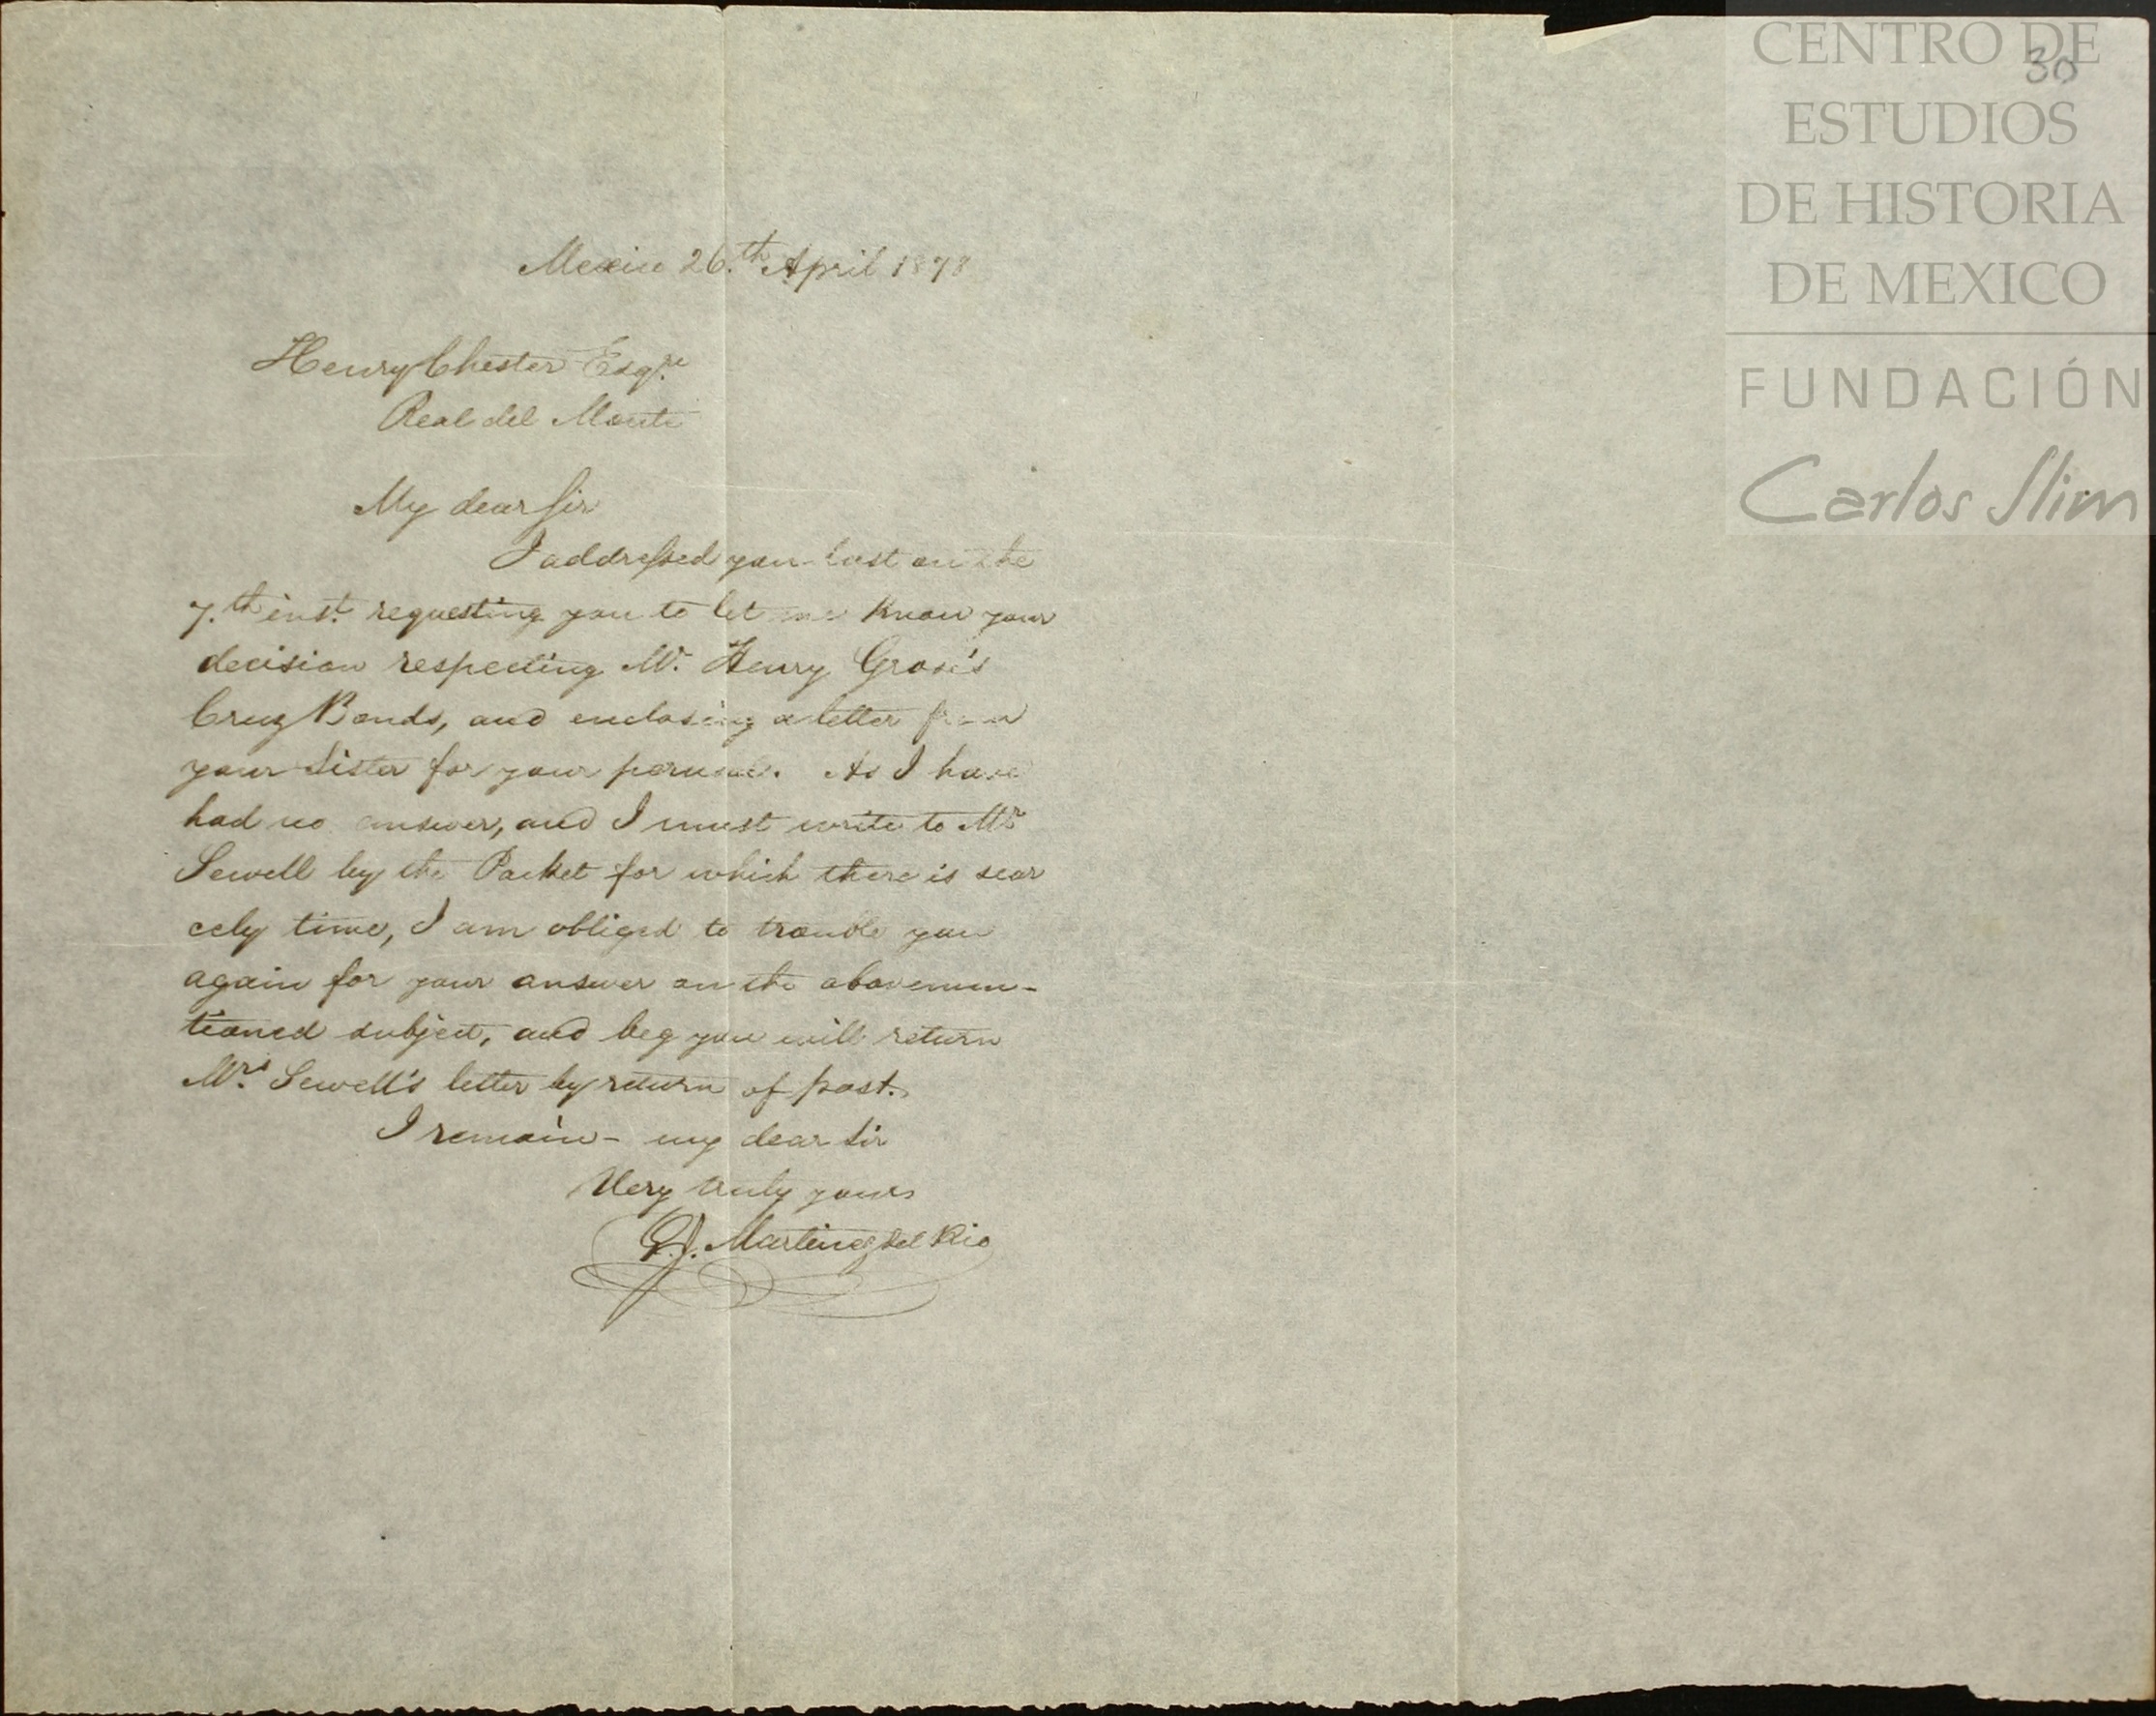 CENTRO DE
ESTUDIOS
DE HISTORIA
DE MEXICO
FUNDACIÓN
Carlos Slim
30
Mexico 26.th April 1878
Henry Chester Esqre
Real del Monte
My dear Sir
I addressed you last on the
7.th inst. requesting you to let me know your
decision respecting Mr. Henry Grose's
Cruz Bonds, and enclosing a letter from
your Sister for your perusal. As I have
had no answer, and I must write to Mr
Sewell by the Packet for which there is scar
cely time, I am obliged to trouble you
again for your answer on the abovemen-
tioned subject, and beg you will return
Mrs. Sewell's letter by return of post.
I remain - my dear Sir
Very truly yours
Martinez del Rio